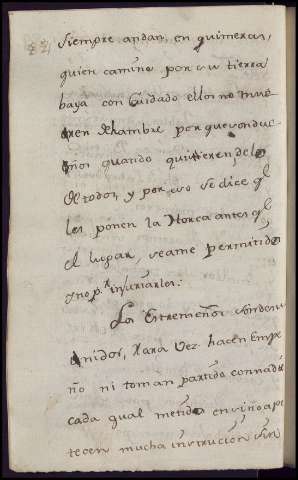 siempre andan, en quimeras,
quien camine por su tierra
baya con Cuidado ellos no mue
ren de hambre porque son due
ños quando quisieren de lo
de todos, y por eso se dice q.l
les ponen la Horca antes q.l
el lugar, seame permitido
y no p.r injuriarlos.
Los Estremeños son deni
nidos, Rara Vez hacen Empe
ño ni toman partido con nadie
cada qual metido en si no ape
tecen mucha instrucción sin